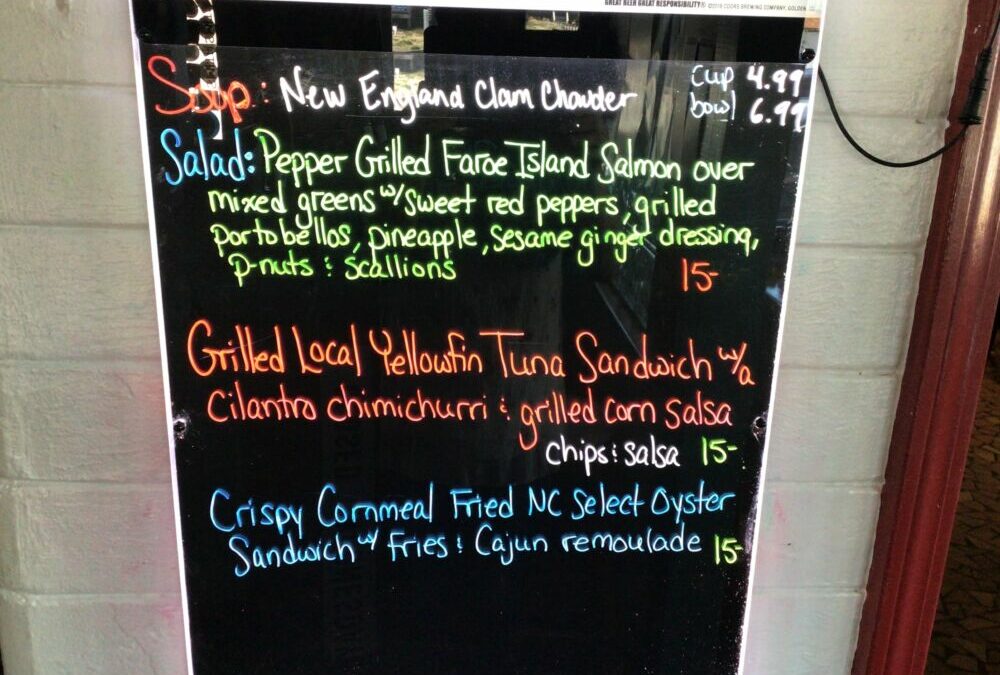 GREAT BEER GREAT RESPONSIBILITY® ©2016 COORS BREWING COMPANY, GOLDEN, CO
Soup: New England Clam Chowder cup 4.99
bowl 6.99
Salad: Pepper Grilled Faroe Island Salmon over
mixed greens w/ sweet red peppers, grilled
portobellos, pineapple, sesame ginger dressing,
p-nuts & scallions 15-
Grilled Local Yellowfin Tuna Sandwich w/a
Cilantro chimichurri & grilled corn salsa
chips & salsa 15-
Crispy Cornmeal Fried NC Select Oyster
Sandwich w/ fries & Cajun remoulade 15-